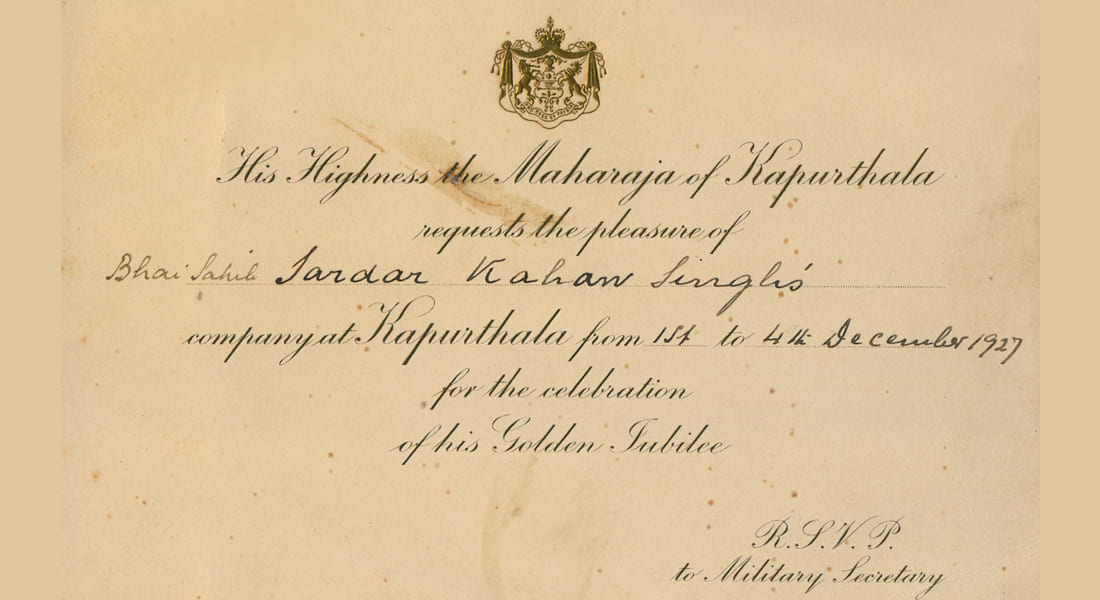 His Highness the Maharaja of Kapurthala
requests the pleasure of
Bhai Sahib Sardar Kahan Singh's
company at Kapurthala from 1st to 4th December 1927
for the celebration
of his Golden Jubilee
R.S.V.P.
to Military Secretary